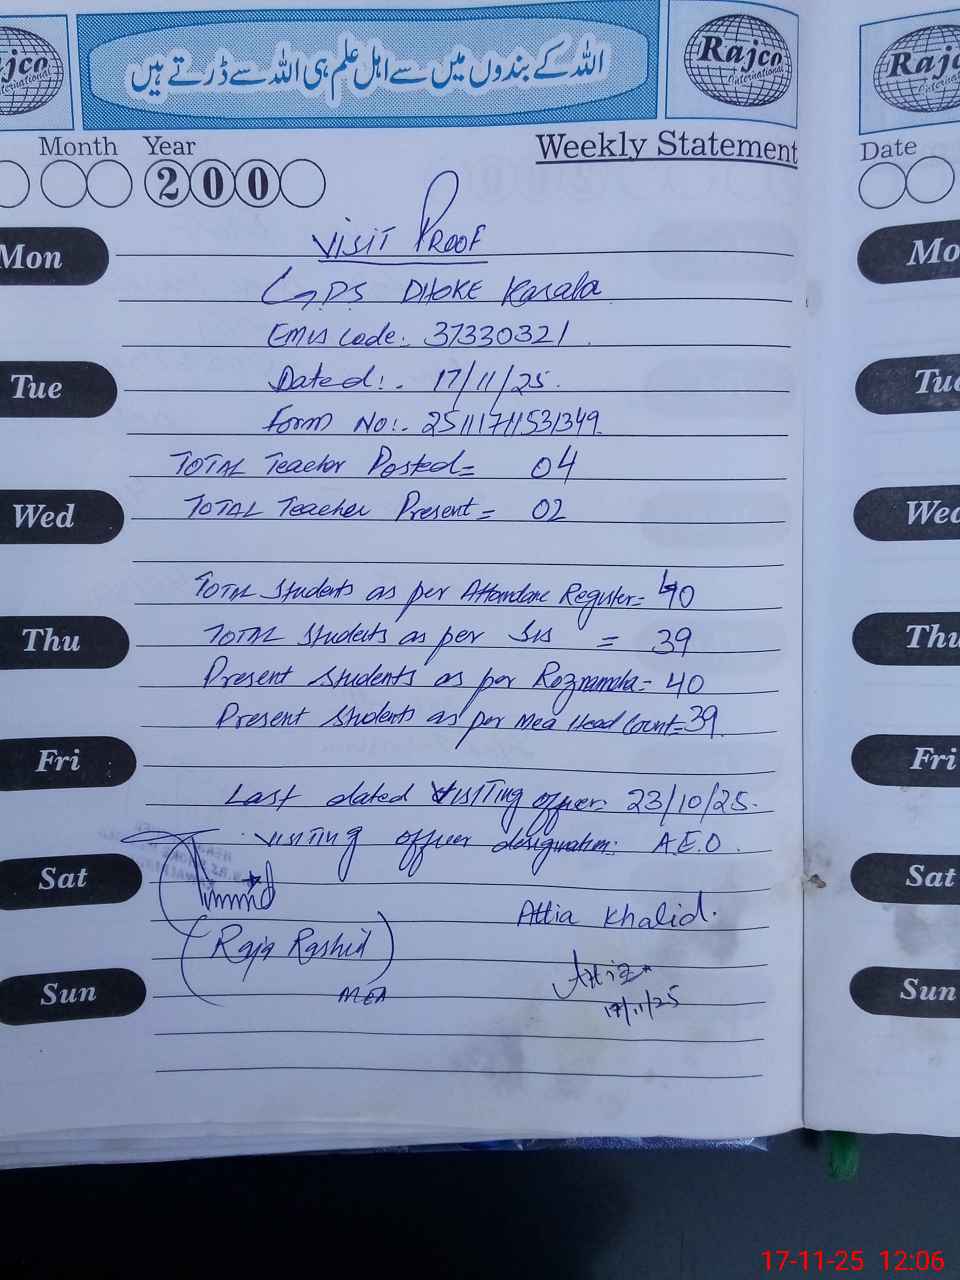 اللہ کے بندوں میں سے اہل علم ہی اللہ سے ڈرتے ہیں
Rajco
International
jco
ternational
Rajc
Internationa
Month Year
2 0 0
Weekly Statement
Date
Mon
Tue
Wed
Thu
Fri
Sat
Sun
VISIT PROOF
G.P.S DHOKE Kasala
EMIS Code:. 37330321.
Dated:. 17/11/25.
Form No:. 25111711531349
TOTAL Teacher Posted= 04
TOTAL Teacher Present = 02
TOTAL Students as per Attendance Register= 40
TOTAL Students as per SIS = 39
Present Students as per Roznamcha= 40
Present Students as per Mea Head Count=39.
Last dated Visiting officer: 23/10/25.
Visiting officer designation: A.E.O.
Attia Khalid.
(Raja Rashid)
MEA
Attia
17/11/25
Mo
Tue
Wed
Thu
Fri
Sat
Sun
17-11-25 12:06